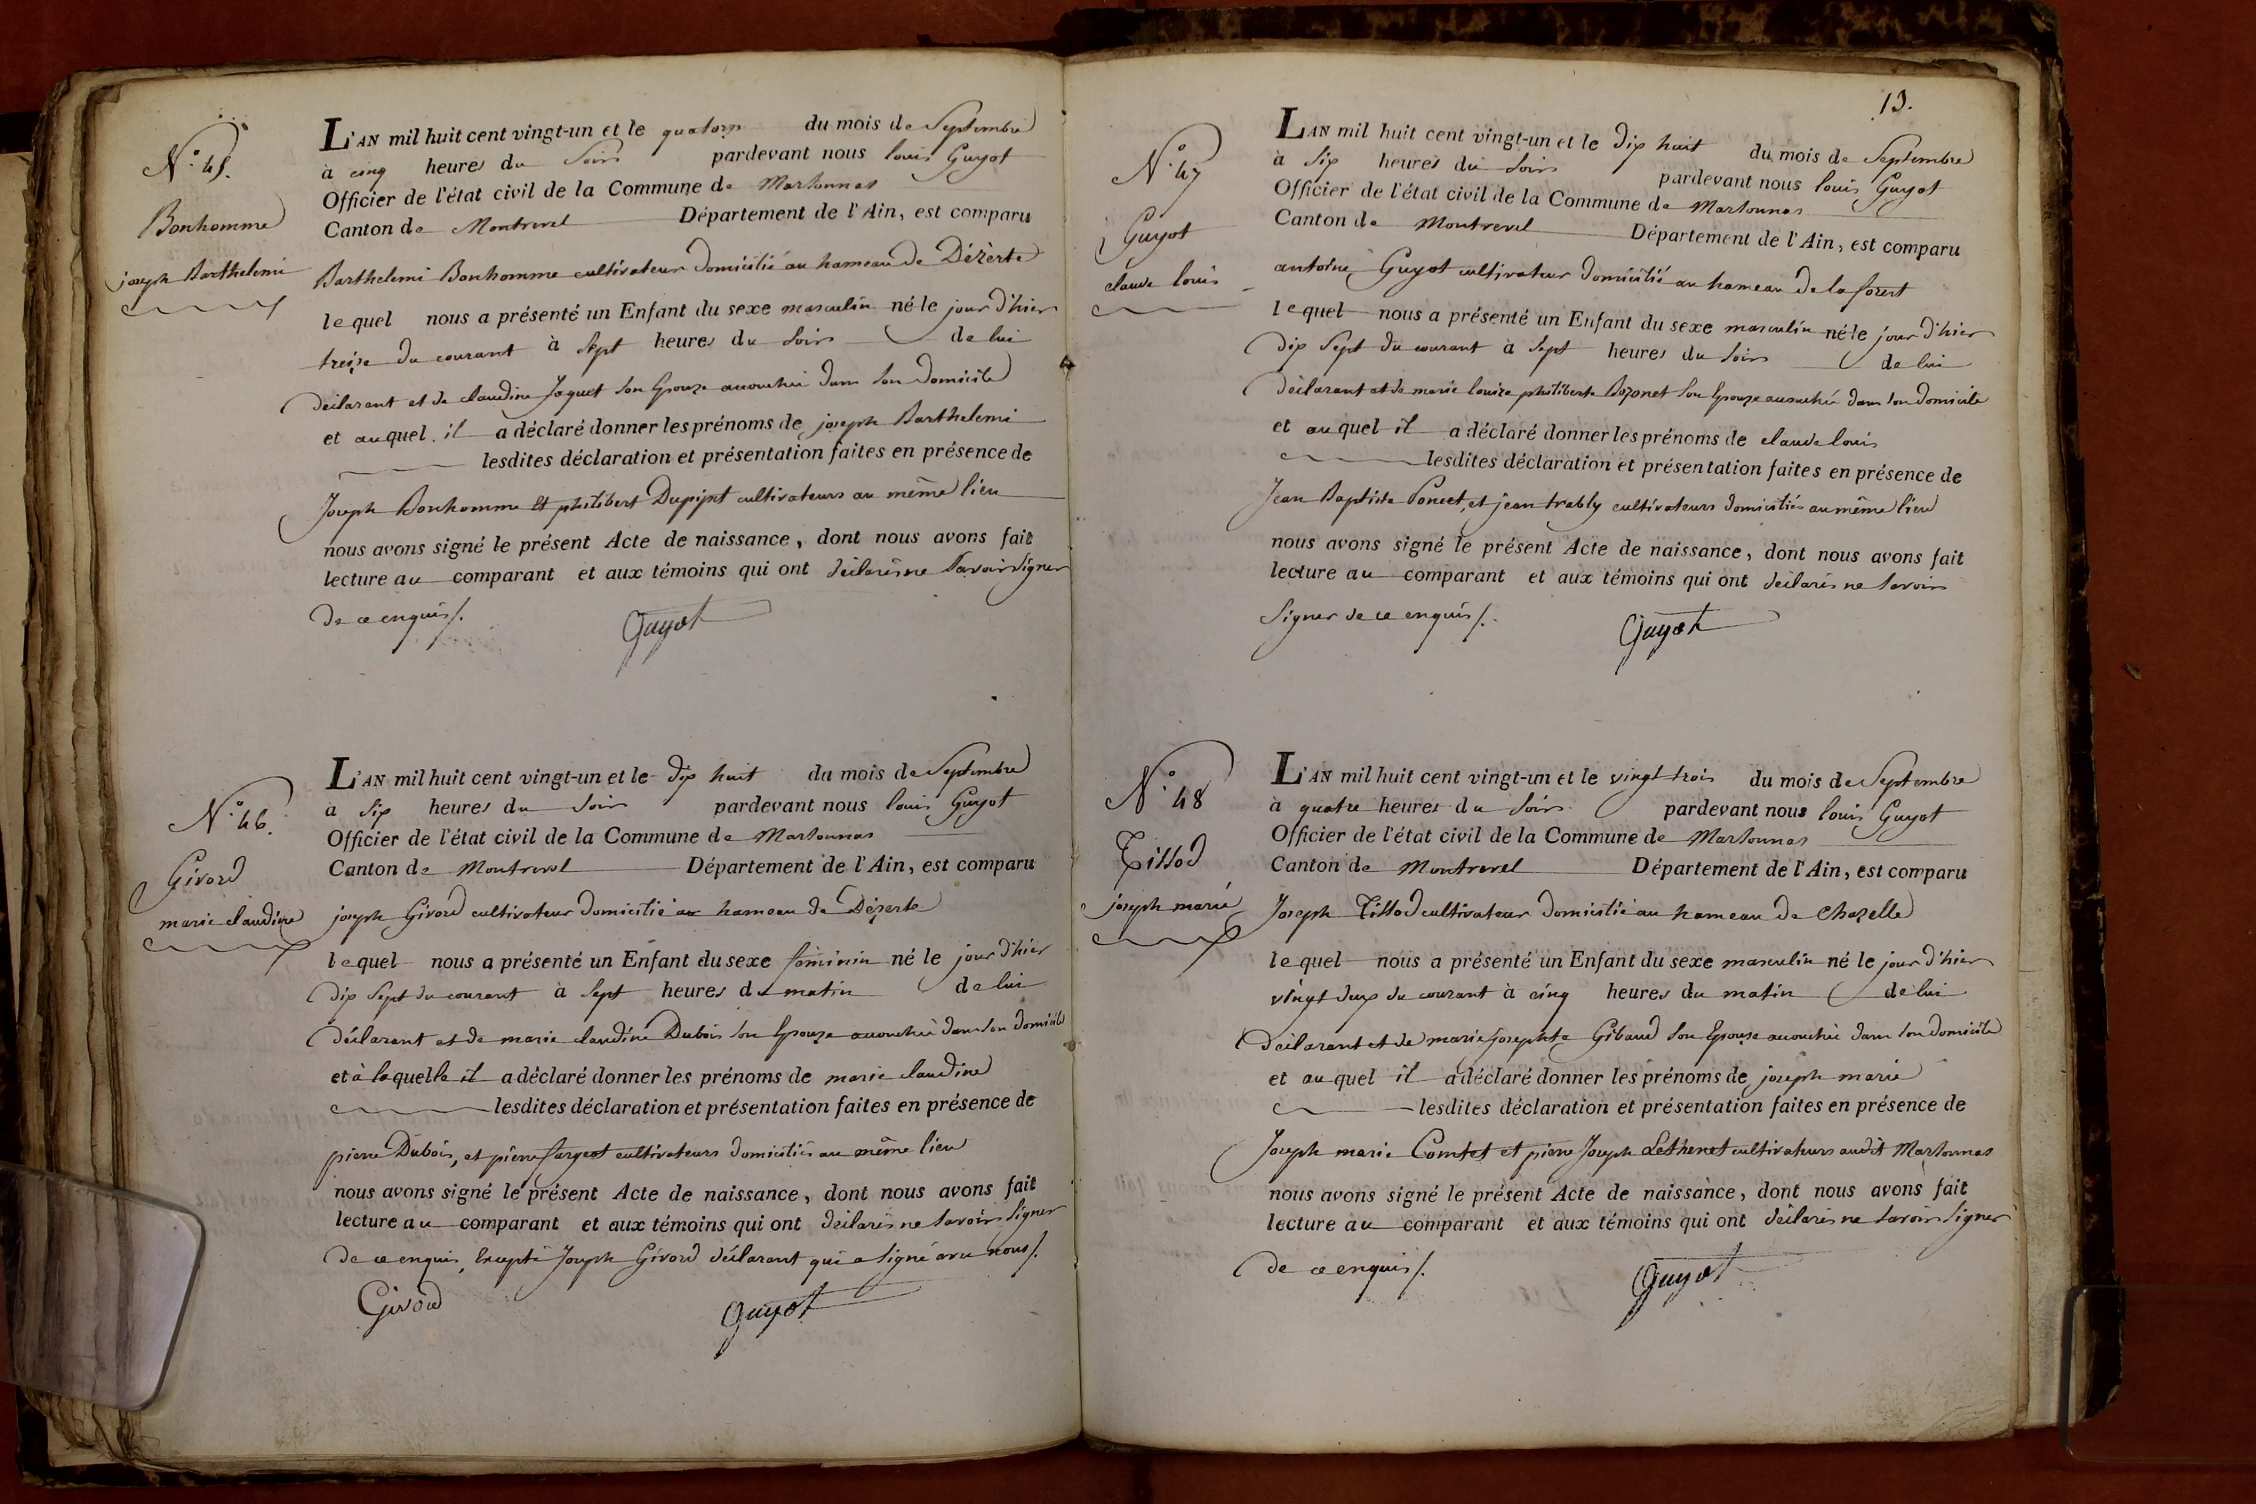 N.° 45.
Bonhomme
joseph Barthelemi
L'AN mil huit cent vingt-un et le quatorze du mois de Septembre
à cinq heures du Soir pardevant nous louis Guyot
Officier de l'état civil de la Commune de Marsonnas
Canton de Montrevel Département de l'Ain, est comparu
Barthelemi Bonhomme cultivateur domicilié au hameau de Dézerte
lequel nous a présenté un Enfant du sexe masculin né le jour d'hier
treize du courant à Sept heures du Soir de lui
déclarant et de claudine Jaquet son Epouze accouchée dans son domicile
et auquel il a déclaré donner les prénoms de joseph Barthelemi
lesdites déclaration et présentation faites en présence de
Joseph Bonhomme et philibert Dupipt cultivateurs au même lieu
nous avons signé le présent Acte de naissance, dont nous avons fait
lecture au comparant et aux témoins qui ont déclarés ne Savoir Signer
de ce enquis /.
Guyot
N.° 46.
Girord
marie claudine
L'AN mil huit cent vingt-un et le dix huit du mois de Septembre
à Six heures du Soir pardevant nous louis Guyot
Officier de l'état civil de la Commune de Marsonnas
Canton de Montrevel Département de l'Ain, est comparu
joseph Girord cultivateur domicilié au hameau de Dézerte
lequel nous a présenté un Enfant du sexe féminin né le jour d'hier
dix Sept du courant à Sept heures du matin de lui
déclarant et de marie claudine Dubois son Epouze accouchée dans son domicile
et à laquelle il a déclaré donner les prénoms de marie claudine
lesdites déclaration et présentation faites en présence de
pierre Dubois, et pierre fargeot cultivateurs domiciliés au même lieu
nous avons signé le présent Acte de naissance, dont nous avons fait
lecture au comparant et aux témoins qui ont déclarés ne Savoir Signer
de ce enquis, Excepté Joseph Girord déclarant qui a Signé avec nous /.
Girord Guyot
13.
N.° 47
Guyot
claude louis
L'AN mil huit cent vingt-un et le dix huit du mois de Septembre
à Six heures du Soir pardevant nous louis Guyot
Officier de l'état civil de la Commune de Marsonnas
Canton de Montrevel Département de l'Ain, est comparu
antoine Guyot cultivateur domicilié au hameau de la forest
lequel nous a présenté un Enfant du sexe masculin né le jour d'hier
dix Sept du courant à Sept heures du Soir de lui
déclarant et de marie louize philiberte Bozonet son Epouze accouchée dans son domicile
et auquel il a déclaré donner les prénoms de claude louis
lesdites déclaration et présentation faites en présence de
Jean Baptiste Poncet, et jean trably cultivateurs domiciliés au même lieu
nous avons signé le présent Acte de naissance, dont nous avons fait
lecture au comparant et aux témoins qui ont déclarés ne Savoir
Signer de ce enquis /.
Guyot
N.° 48
Tissod
joseph marie
L'AN mil huit cent vingt-un et le vingt trois du mois de Septembre
à quatre heures du Soir pardevant nous louis Guyot
Officier de l'état civil de la Commune de Marsonnas
Canton de Montrevel Département de l'Ain, est comparu
Joseph Tissod cultivateur domicilié au hameau de Chazelle
lequel nous a présenté un Enfant du sexe masculin né le jour d'hier
vingt deux du courant à cinq heures du matin de lui
déclarant et de marie josephte Gibaud son Epouze accouchée dans son domicile
et auquel il a déclaré donner les prénoms de joseph marie
lesdites déclaration et présentation faites en présence de
Joseph marie Comtet et pierre Joseph Lethenet cultivateurs audit Marsonnas
nous avons signé le présent Acte de naissance, dont nous avons fait
lecture au comparant et aux témoins qui ont déclarés ne Savoir Signer
de ce enquis /.
Guyot